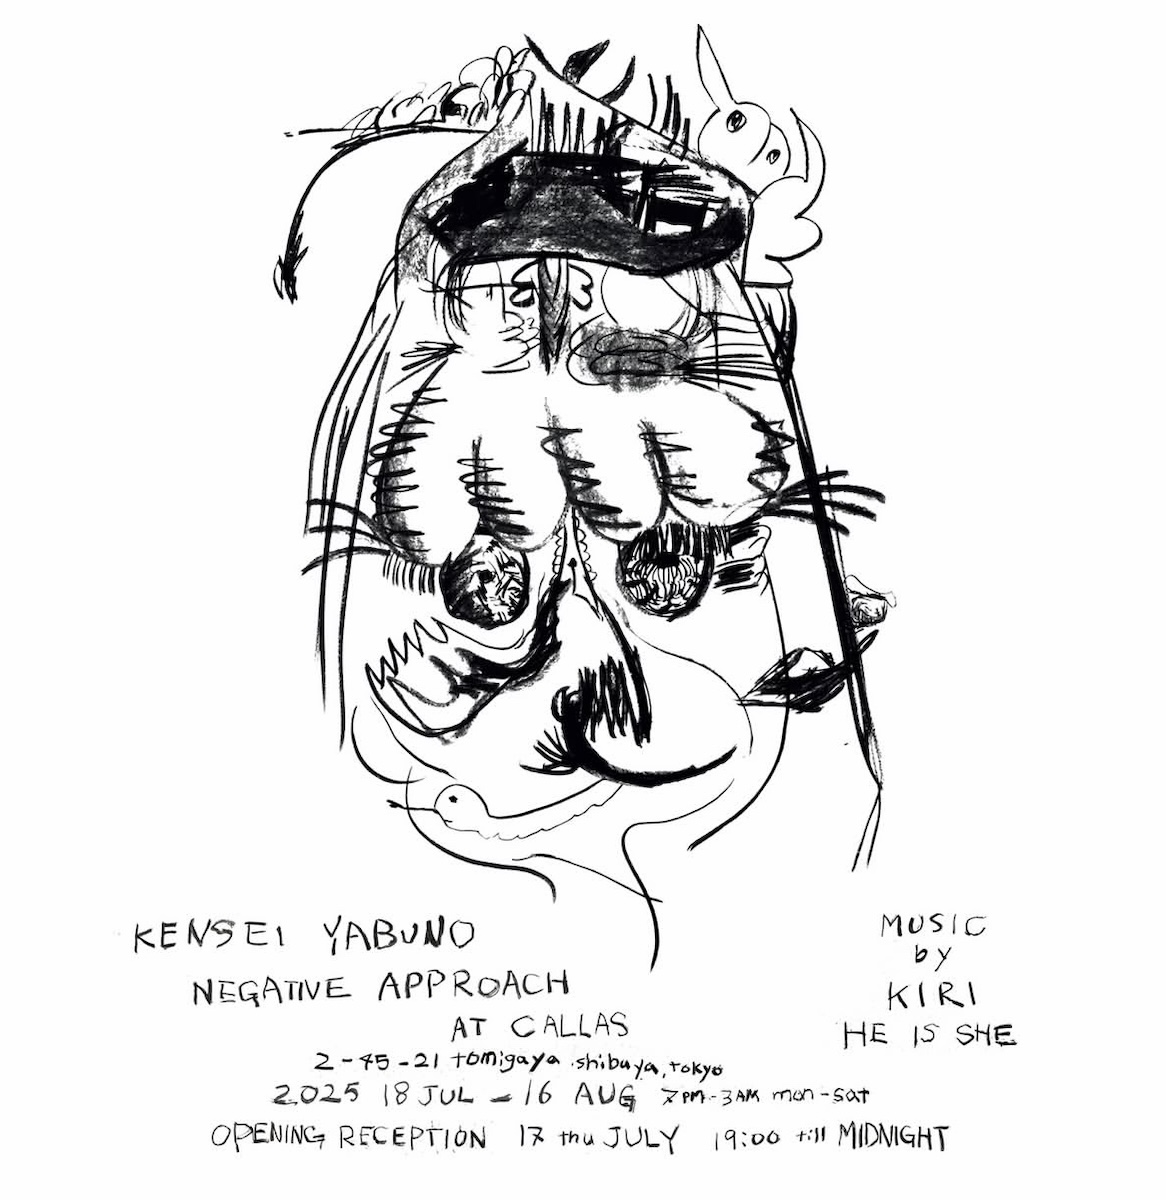 KENSEI YABUNO
NEGATIVE APPROACH
AT CALLAS
2-45-21 tomigaya.shibuya,tokyo
2025 18 JUL - 16 AUG 7PM-3AM mon-sat
OPENING RECEPTION 17 thu JULY 19:00 till MIDNIGHT
MUSIC
by
KIRI
HE IS SHE